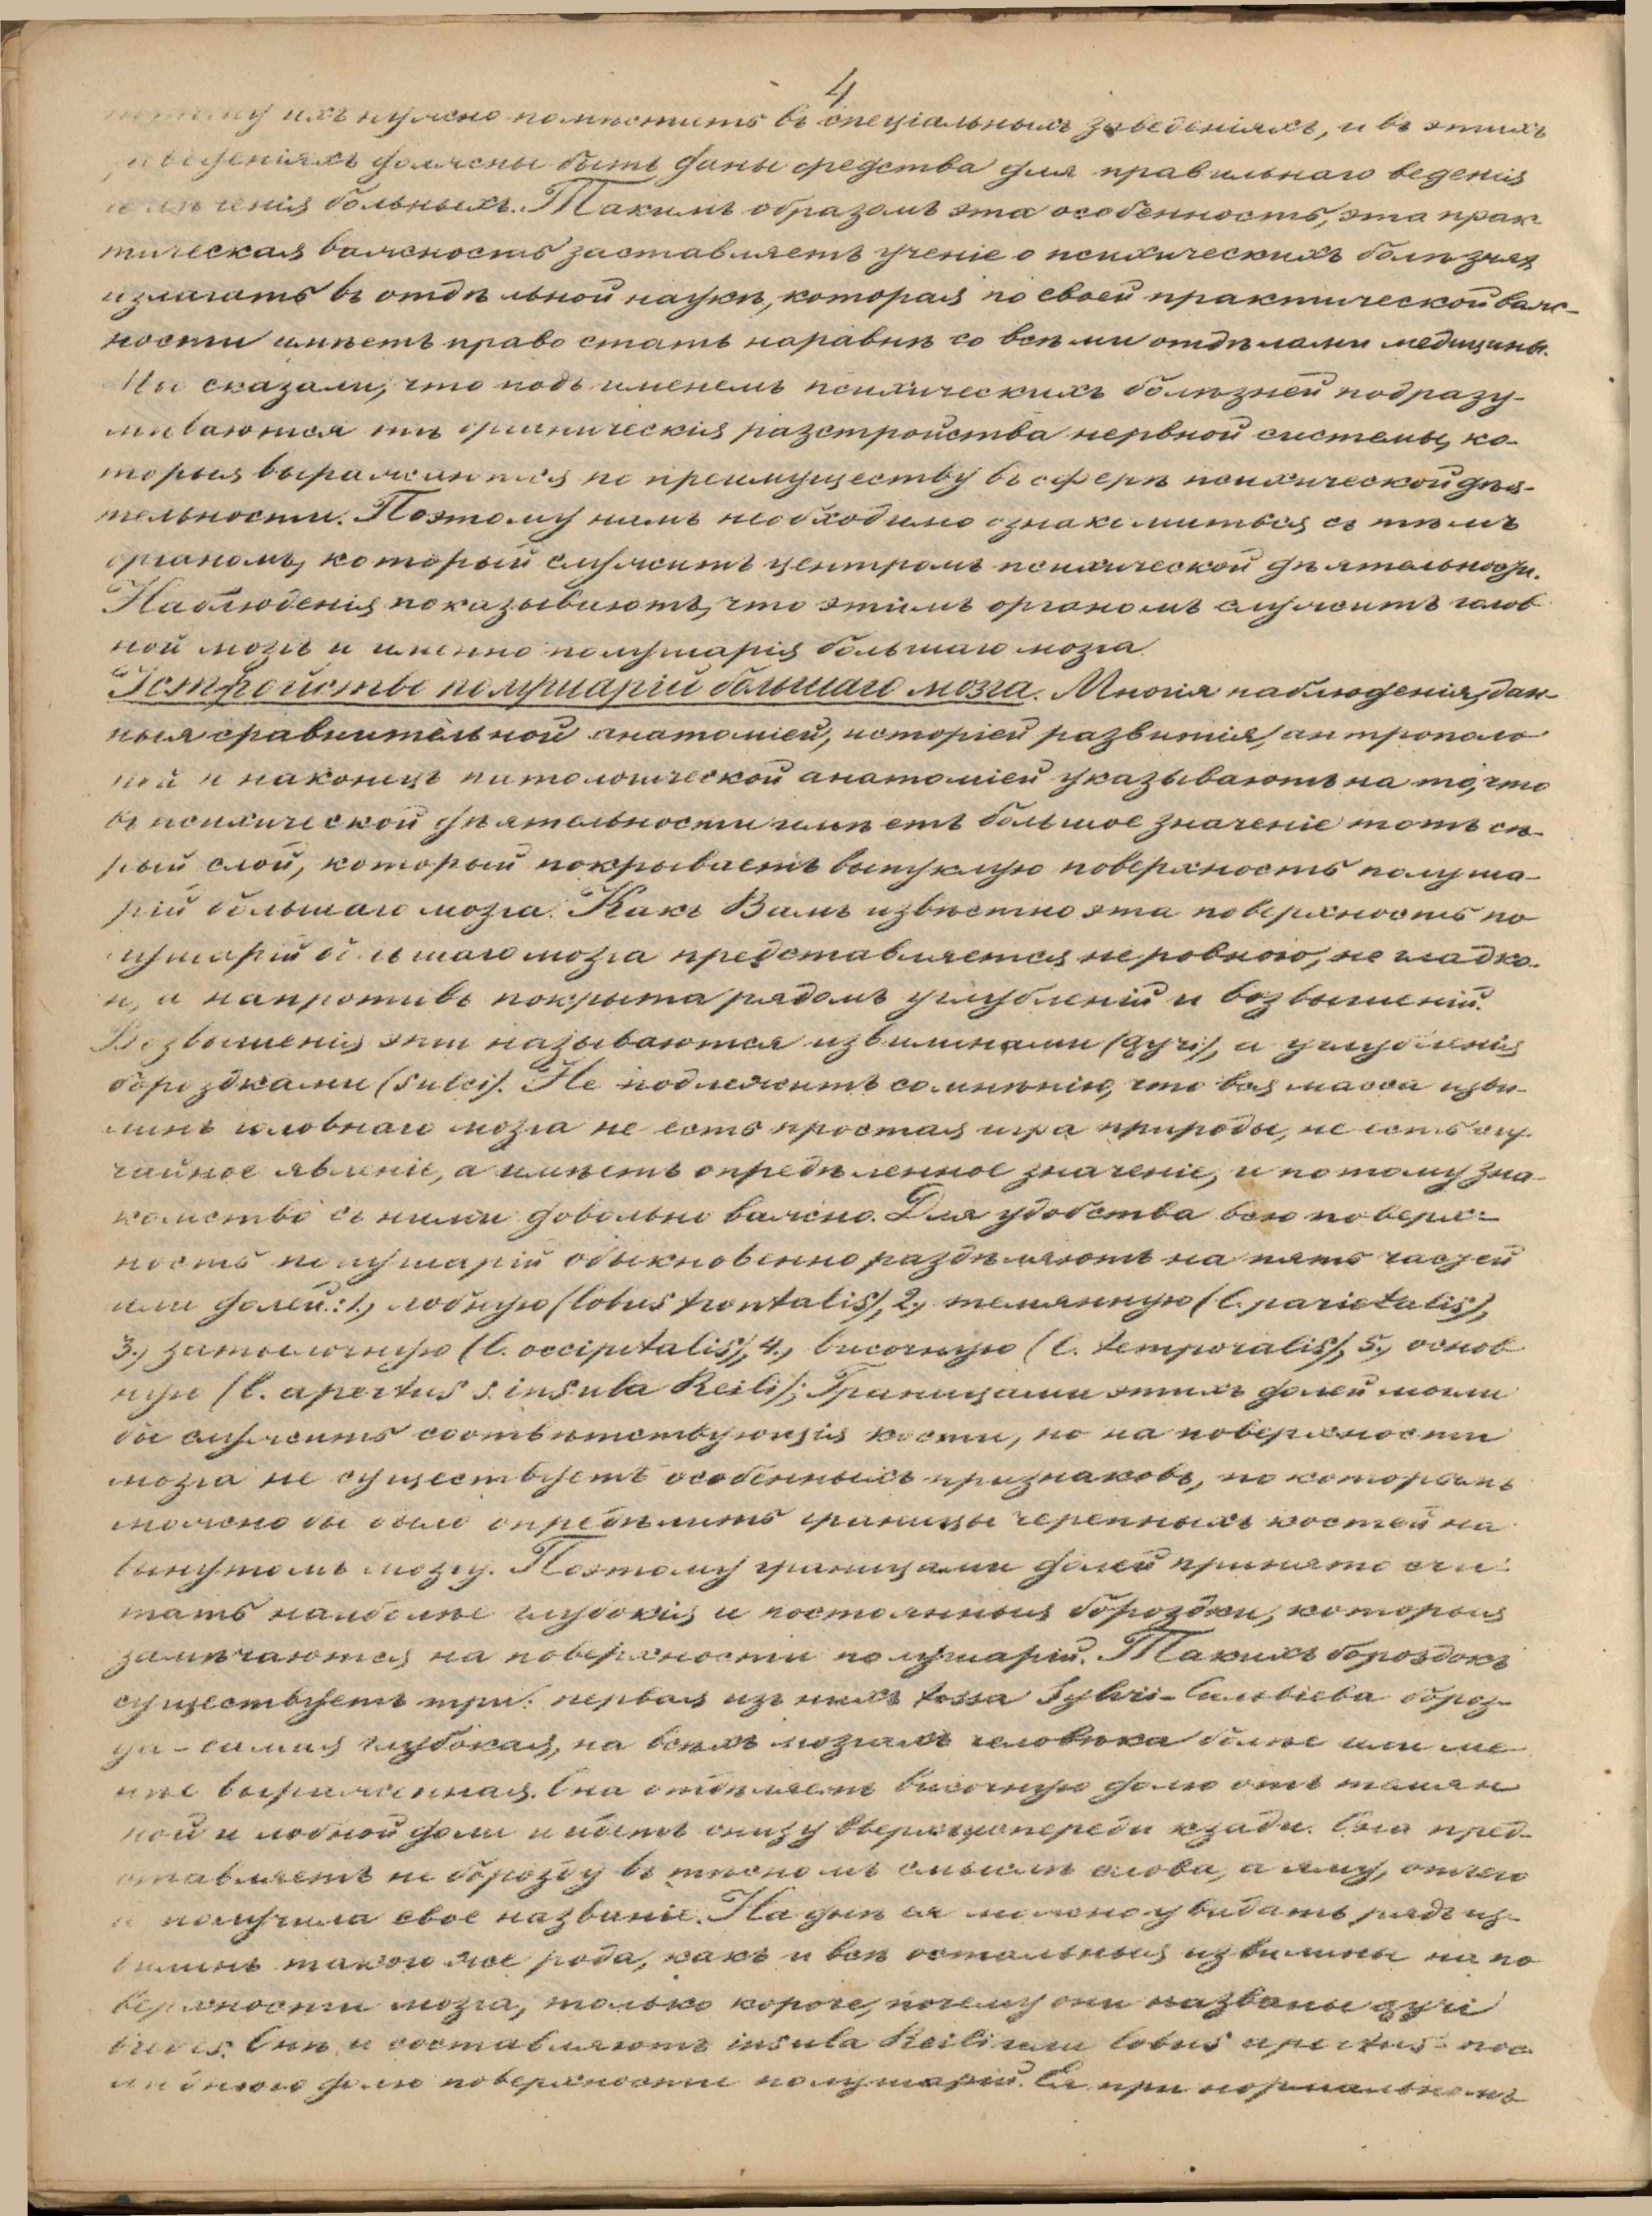 4
ихъ нужно помѣстить въ спеціальныхъ заведеніяхъ, и въ этихъ
заведеніяхъ должны быть даны средства для правильнаго веденія
леченія больныхъ. Такимъ образомъ эта особенность, эта прак-
тическая важность заставляетъ ученіе о психическихъ болѣзнях
излагать въ отдѣльной наукѣ, которая по своей практической важ-
ности имѣетъ право стать наравнѣ со всѣми отдѣлами медицины.
Мы сказали, что подъ именемъ психическихъ болѣзней подразу-
мѣваются тѣ органическія разстройства нервной системы, ко-
торыя выражаются по преимуществу въ сферѣ психической дѣя-
тельности. Поэтому намъ необходимо ознакомиться съ тѣмъ
органомъ, который служитъ центромъ психической дѣятельности.
Наблюденія показываютъ, что этимъ органомъ служитъ голов
ной мозгъ и именно полушарія большаго мозга
Устройство полушарій большаго мозга. Многія наблюденія, дан-
ныя сравнительной анатоміей, исторіей развитія, антрополо
гіей и наконецъ патологической анатоміей указываютъ на то, что
въ психической дѣятельности имѣетъ большое значеніе тотъ сѣ-
рый слой, который покрываетъ выпуклую поверхность полуша-
рій большаго мозга. Какъ Вамъ извѣстно эта поверхность по
лушарій большаго мозга представляется неровною, не гладко-
ю, а напротивъ покрыта рядомъ углубленій и возвышеній.
Возвышенія эти называются извилинами (gyri), а углубленія
бороздками (sulci). Не подлежитъ сомнѣнію, что вся масса изви-
линъ головнаго мозга не есть простая игра природы, не есть слу-
чайное явленіе, а имѣетъ опредѣленное значеніе, и потому зна-
комство съ ними довольно важно. Для удобства всю поверх-
ность полушарій обыкновенно раздѣляютъ на пять частей
или долей: 1., лобную (lobus frontalis), 2., темянную (l. parietalis),
3., затылочную (l. occipitalis), 4., височную (l. temporalis), 5., основ
ную (l. apertus s. insula Reili); Границами этихъ долей могли
бы служить соотвѣтствующія кости, но на поверхности
мозга не существуетъ особенныхъ признаковъ, по которымъ
можно бы было опредѣлить границы черепныхъ костей на
вынутомъ мозгу. Поэтому границами долей принято счи-
тать наиболѣе глубокія и постоянныя бороздки, которыя
замѣчаются на поверхности полушарій. Такихъ бороздокъ
существуетъ три: первая изъ нихъ fossa Sylvii - Сильвіева бороз-
да - самая глубокая, на всѣхъ мозгахъ человѣка болѣе или ме
нѣе выраженная. Она отдѣляетъ височную долю отъ темян
ной и лобной доли и идетъ снизу вверхъ спереди кзади. Она пред-
ставляетъ не борозду въ тѣсномъ смыслѣ слова, а яму, отчего
и получила свое названіе. На днѣ ея можно увидать рядъ из-
вилинъ такого же рода, какъ и всѣ остальныя извилины на по
верхности мозга, только короче, почему они названы gyri
breves. Онѣ и составляютъ insula Reili или lobus apertus - пос
лѣднюю долю поверхности полушарій. Ея при нормальномъ